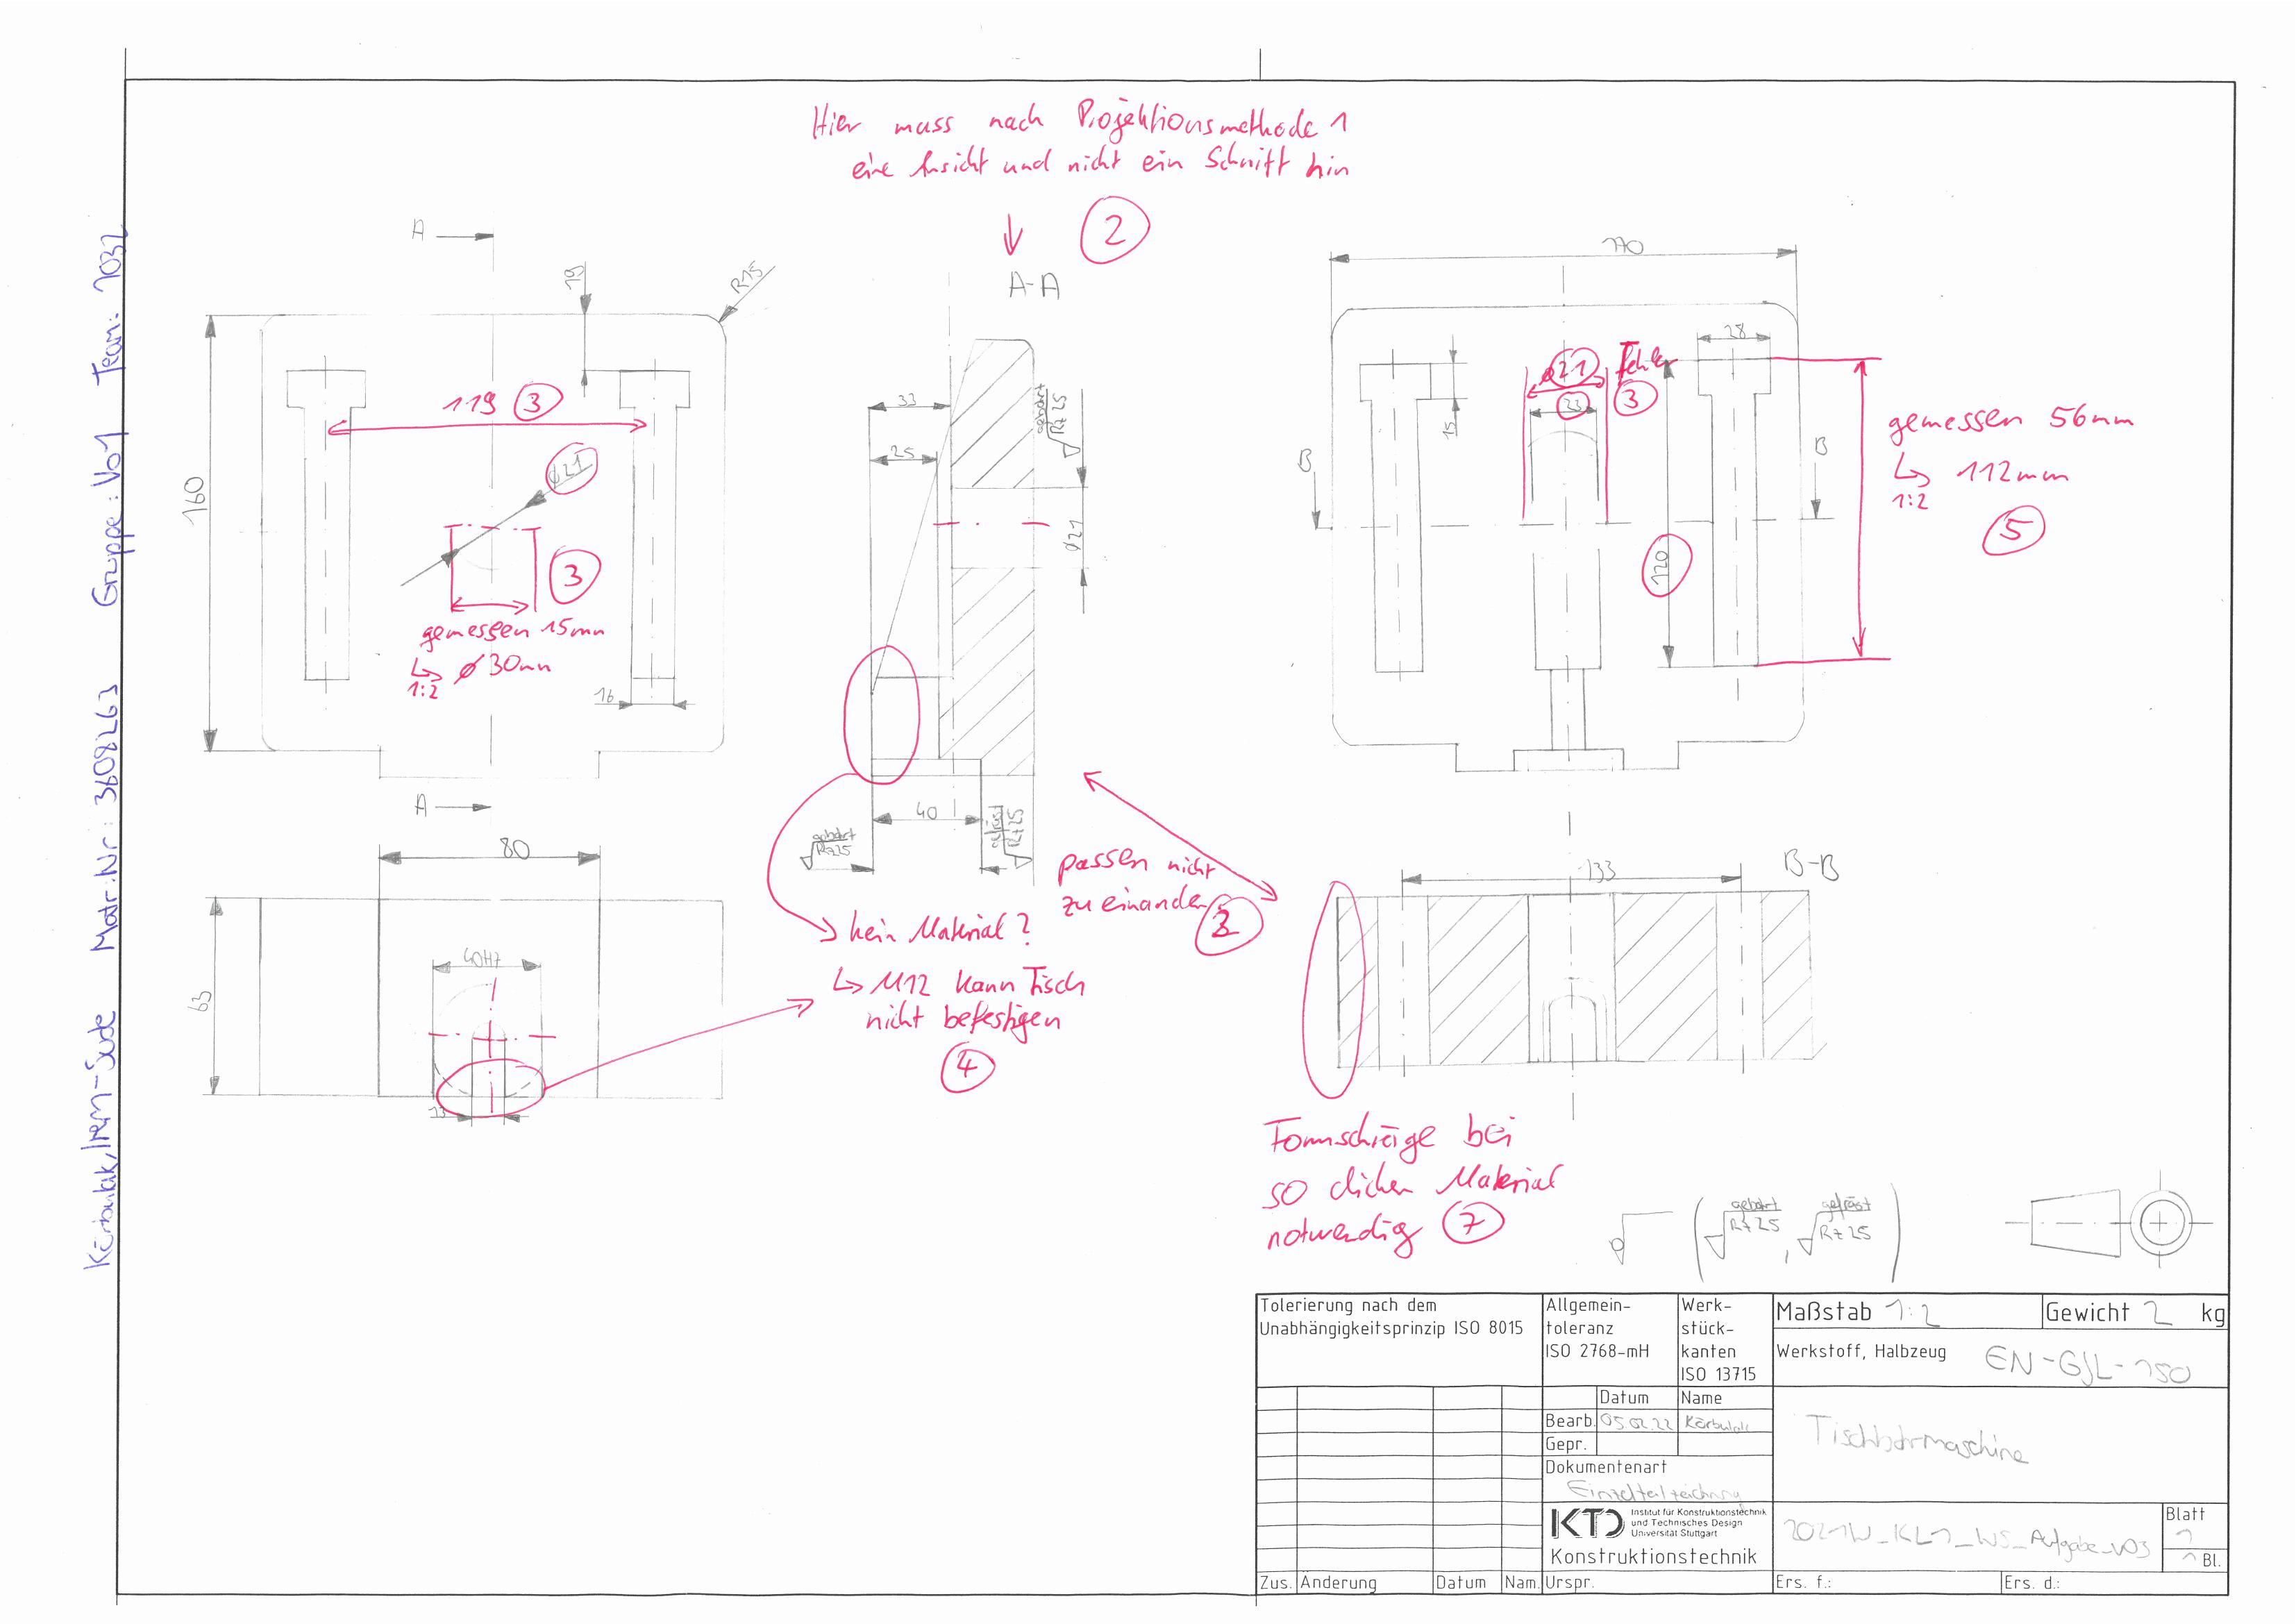 Hier muss nach Projektionsmethode 1
eine Ansicht und nicht ein Schnitt hin
2
A
A-A
19
R15
119 3
ø21
160
3
gemessen 15mm
↳ ø30mm
1:2
16
A
80
63
40H7
13
33
25
gebohrt
Rz 25
ø21
40
gebohrt
Rz25
gefräst
Rz 25
kein Material?
↳ M12 kann Tisch
nicht befestigen
4
passen nicht
zu einander
2
170
28
ø21 Fehler
3
33
15
B
B
120
gemessen 56mm
↳ 112mm
1:2
5
133
B-B
Formschräge bei
so dicken Material
notwendig 7
gebohrt
Rz 25
,
gefräst
Rz 25
Matr.Nr: 3608263 Gruppe: V01 Team: 1032
Tolerierung nach dem
Unabhängigkeitsprinzip ISO 8015
Allgemein-
toleranz
ISO 2768-mH
Werk-
stück-
kanten
ISO 13715
Maßstab 1:2
Gewicht 2 kg
Werkstoff, Halbzeug EN-GJL-150
Datum Name
Bearb. 05.02.22 Körbulak
Gepr.
Dokumentenart
Einzelteilzeichnung
Tischbohrmaschine
KTD Institut für Konstruktionstechnik
und Technisches Design
Universität Stuttgart
Konstruktionstechnik
2021W_KL1_W5_Aufgabe_V03
Blatt
1
1 Bl.
Zus. Änderung Datum Nam. Urspr. Ers. f.: Ers. d.: